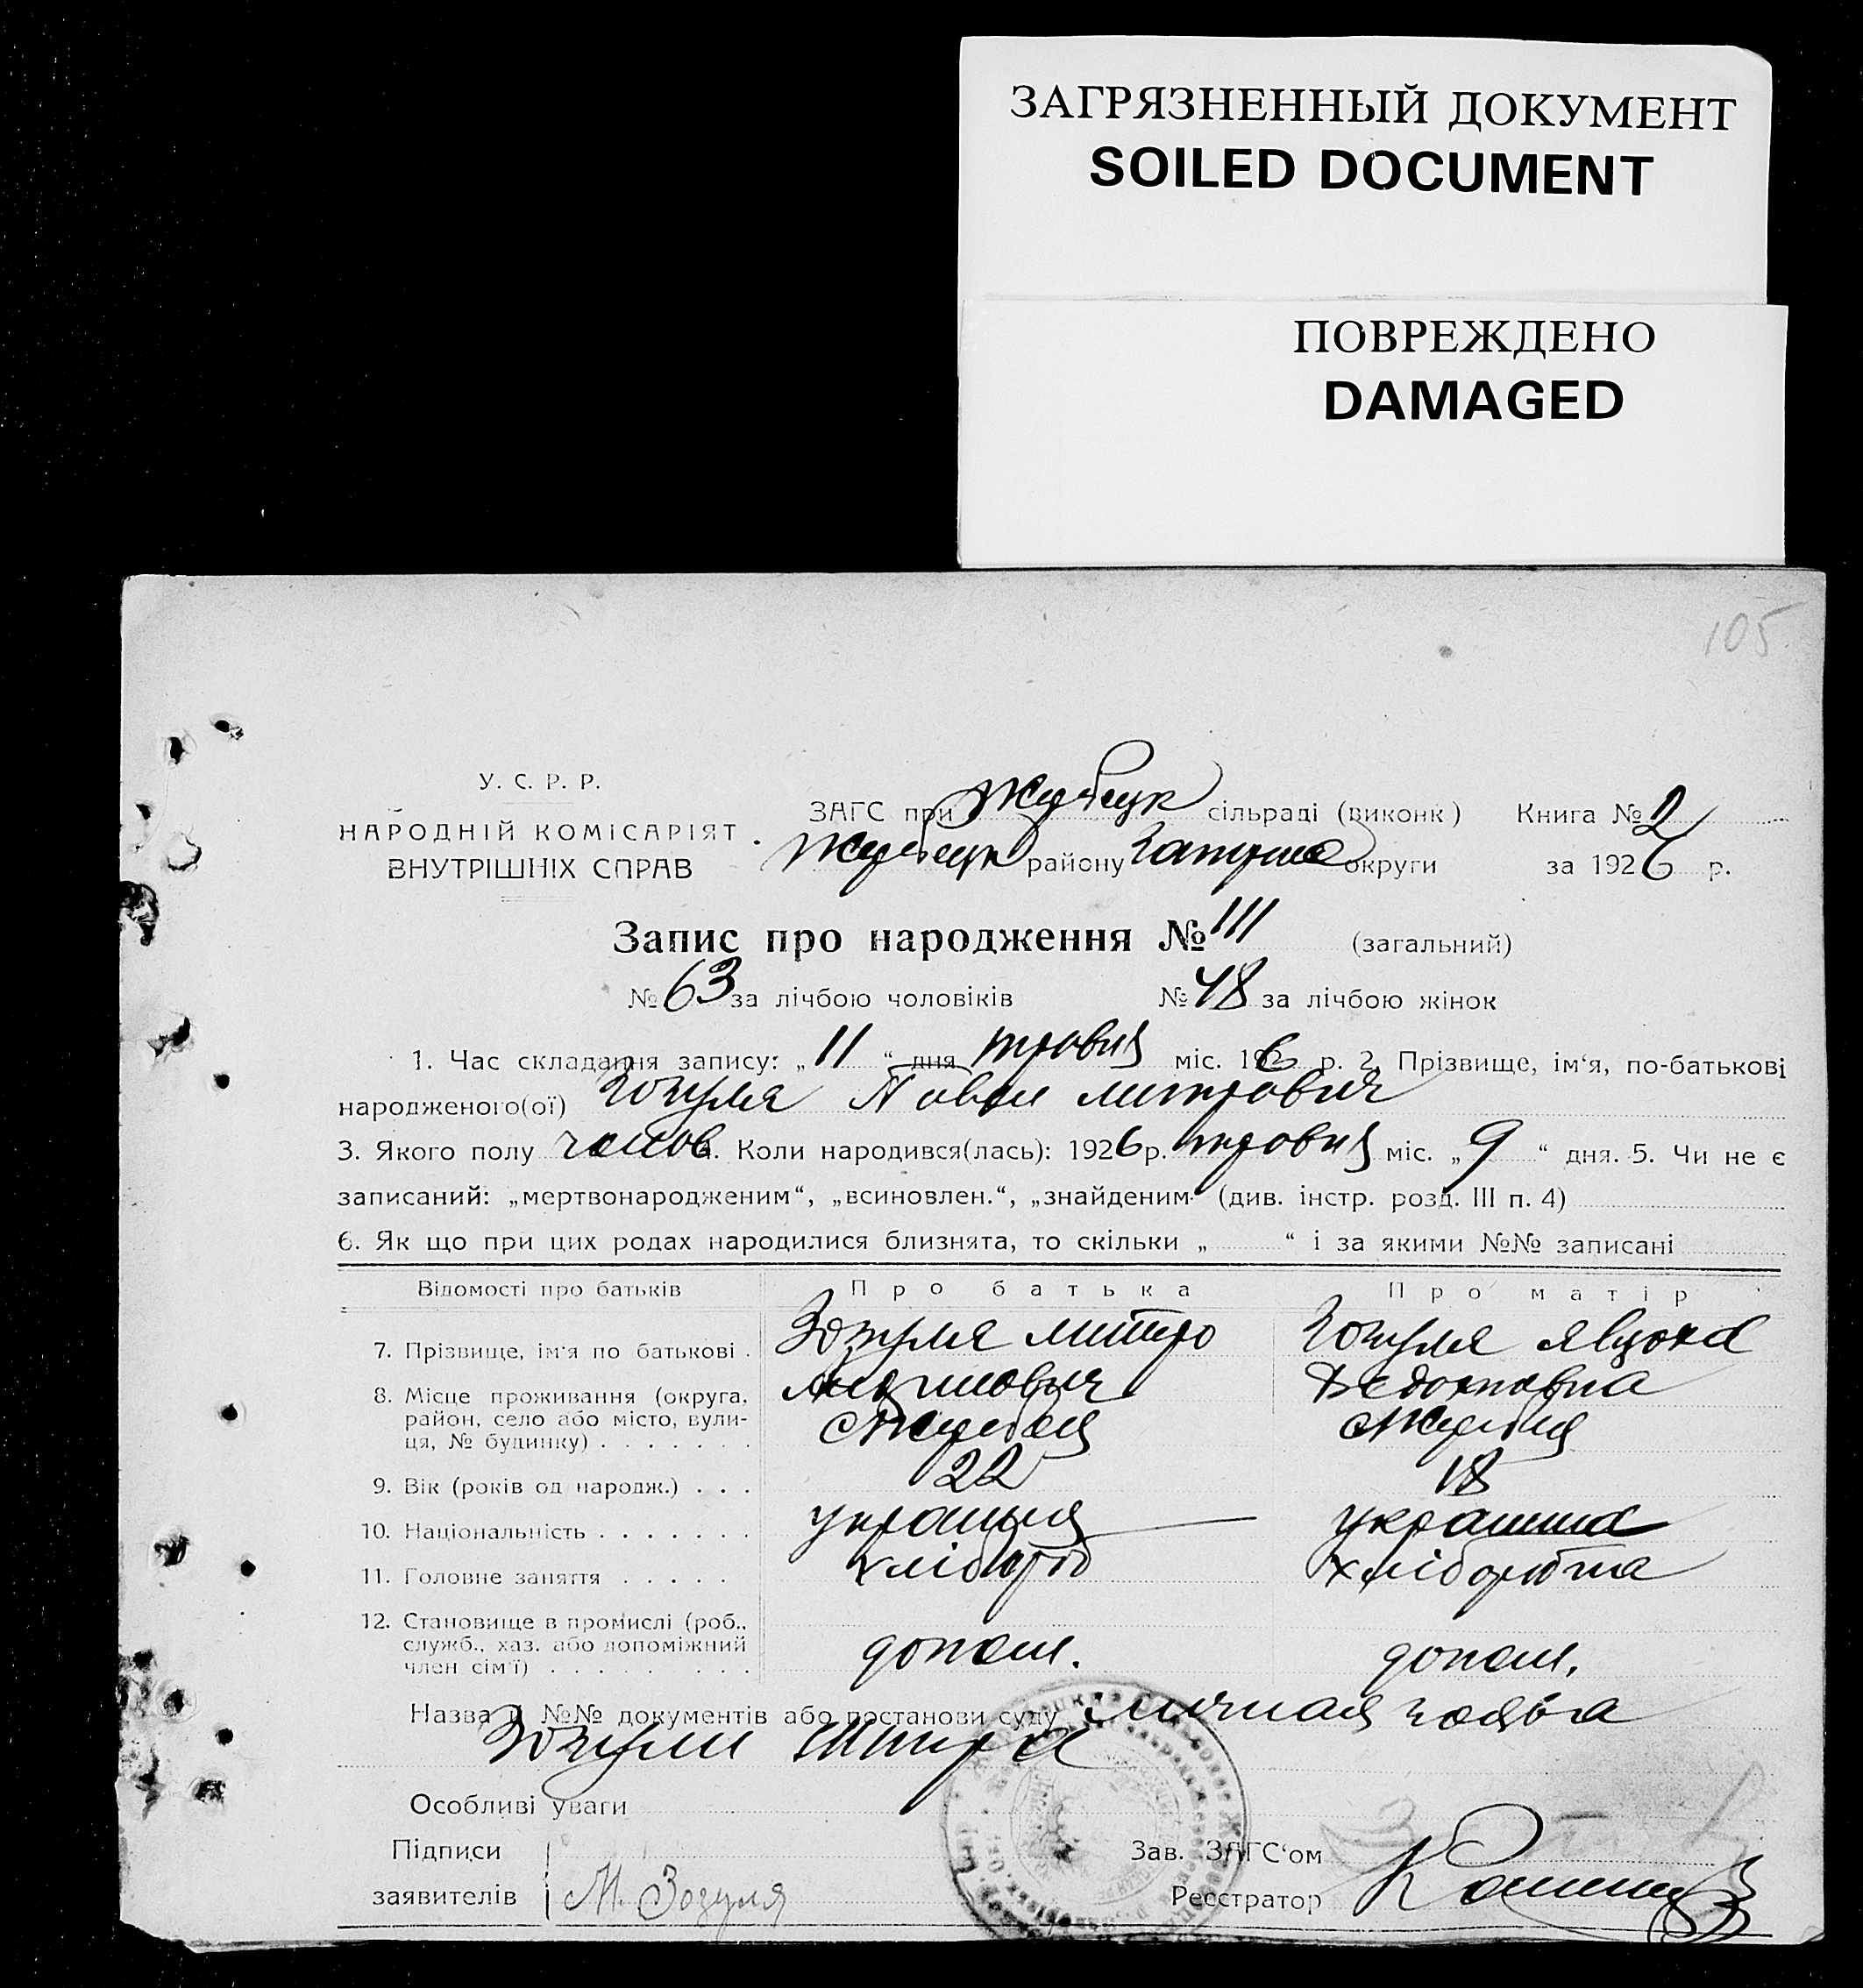 ЗАГРЯЗНЕННЫЙ ДОКУМЕНТ
SOILED DOCUMENT
ПОВРЕЖДЕНО
DAMAGED
105
У. С. Р. Р.
НАРОДНІЙ КОМІСАРІЯТ
ВНУТРІШНІХ СПРАВ
ЗАГС при сільраді (виконк) Книга № 2
району округи за 1926 р.
Запис про народження № 111 (загальний)
№ 63 за лічбою чоловіків № 48 за лічбою жінок
1. Час складання запису: „11“ дня травня міс. 1926 р. 2. Прізвище, ім‘я, по-батькові
народженого(ої) Зозуля Павел Митрович
3. Якого полу чолов. Коли народився(лась): 1926 р. травня міс. „9“ дня. 5. Чи не є
записаний: „мертвонародженим“, „всиновлен.“, „знайденим“ (див. інстр. розд. III п. 4)
6. Як що при цих родах народилися близнята, то скільки „ “ і за якими №№ записані
Відомості про батьків Про батька Про матір
7. Прізвище, ім‘я по батькові . Зозуля Митро Зозуля Явдоха
8. Місце проживання (округа, Федоровна
район, село або місто, вули-
ця, № будинку) . . . . . . .
9. Вік (років од народж.) . . . 22 18
10. Національність . . . . . . . україн українка
11. Головне заняття . . . . . хлібороб
12. Становище в промислі (роб.,
служб., хаз. або допоміжний допом. допом.
член сім‘ї) . . . . . . . .
Назва й №№ документів або постанови суду личная заява
Зозули Митра
Особливі уваги
Підписи Зав. ЗАГС‘ом
заявителів М. Зозуля Реєстратор